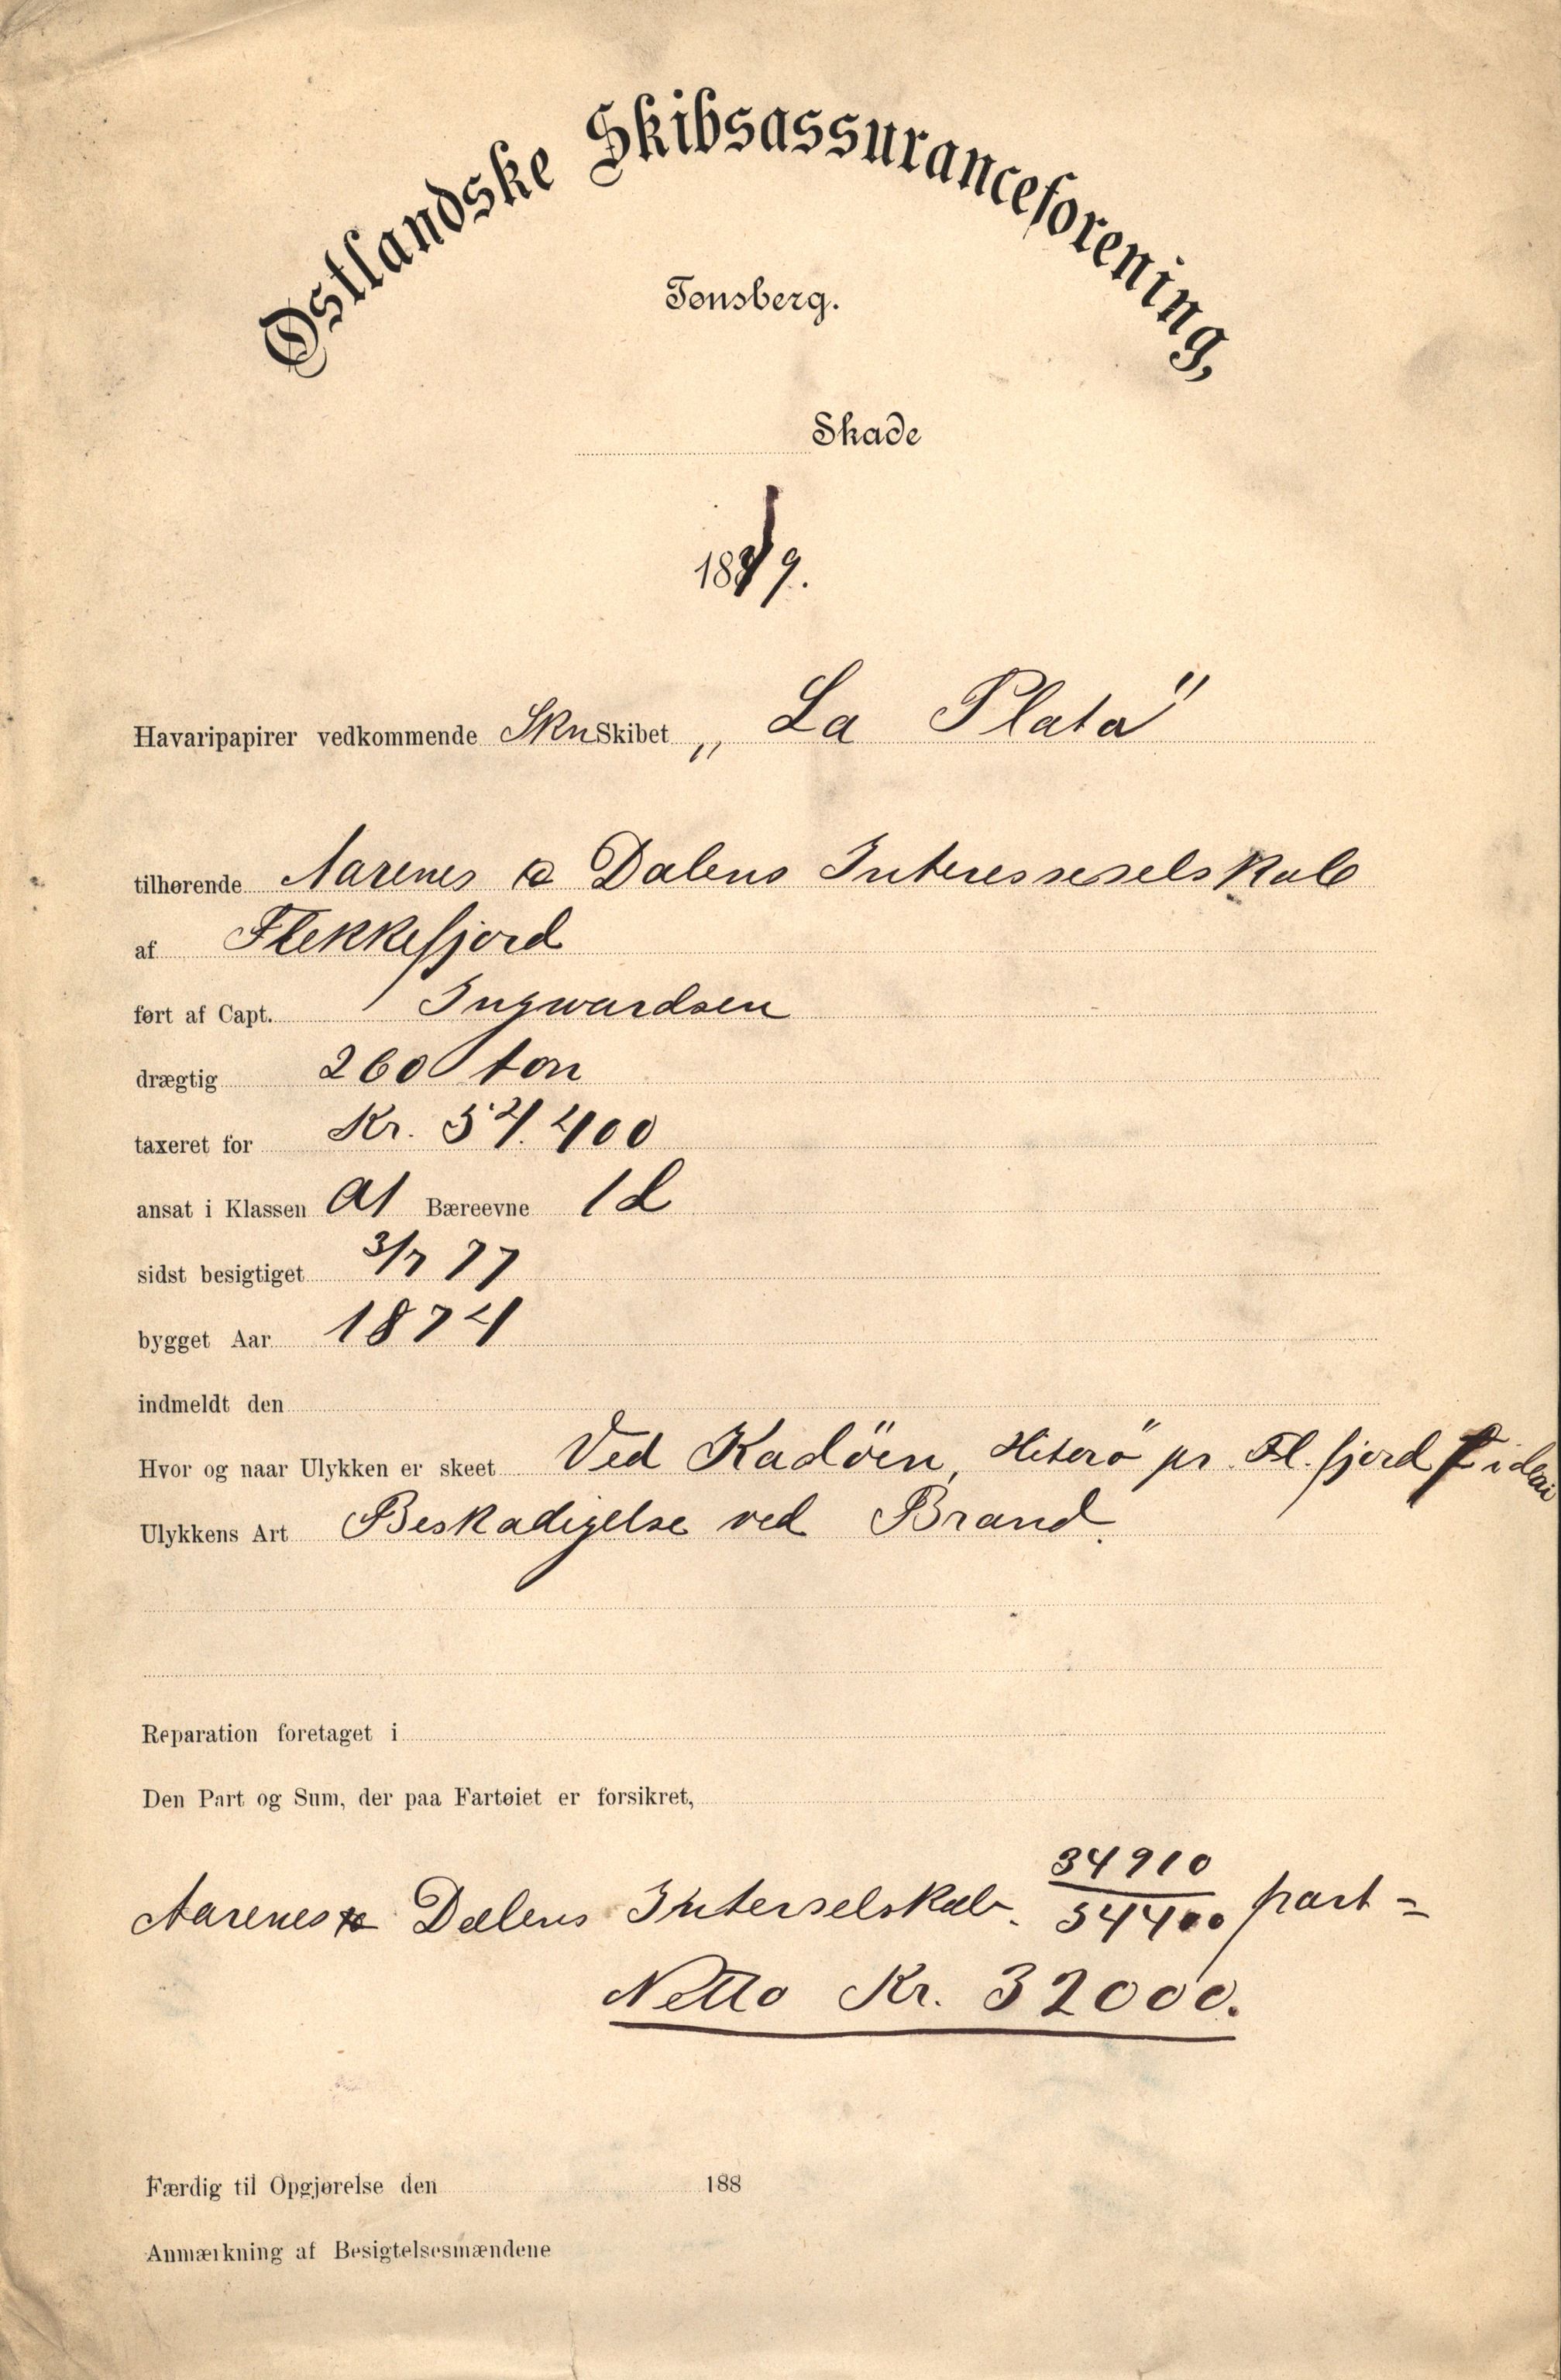 Østlandske Skibsassuranceforening,
Tønsberg.
Skade
1879.
Havaripapirer vedkommende Skn Skibet „La Plata"
tilhørende Aarenes & Dalens Interesseselskab
af Flekkefjord
ført af Capt. Ingwardsen
drægtig 260 ton
taxeret for Kr. 54.400
ansat i Klassen A1 Bæreevne 1L
sidst besigtiget 3/7 77
bygget Aar 1874
indmeldt den
Hvor og naar Ulykken er skeet Ved Kadöen, Hiterö pr. Fl.fjord
Ulykkens Art Beskadigelse ved Brand.
Reparation foretaget i
Den Part og Sum, der paa Fartøiet er forsikret,
Aarenes & Dalens Interselskab. 34910/54400 part =
Netto Kr. 32000.
Færdig til Opgjørelse den 188
Anmærkning af Besigtelsesmændene